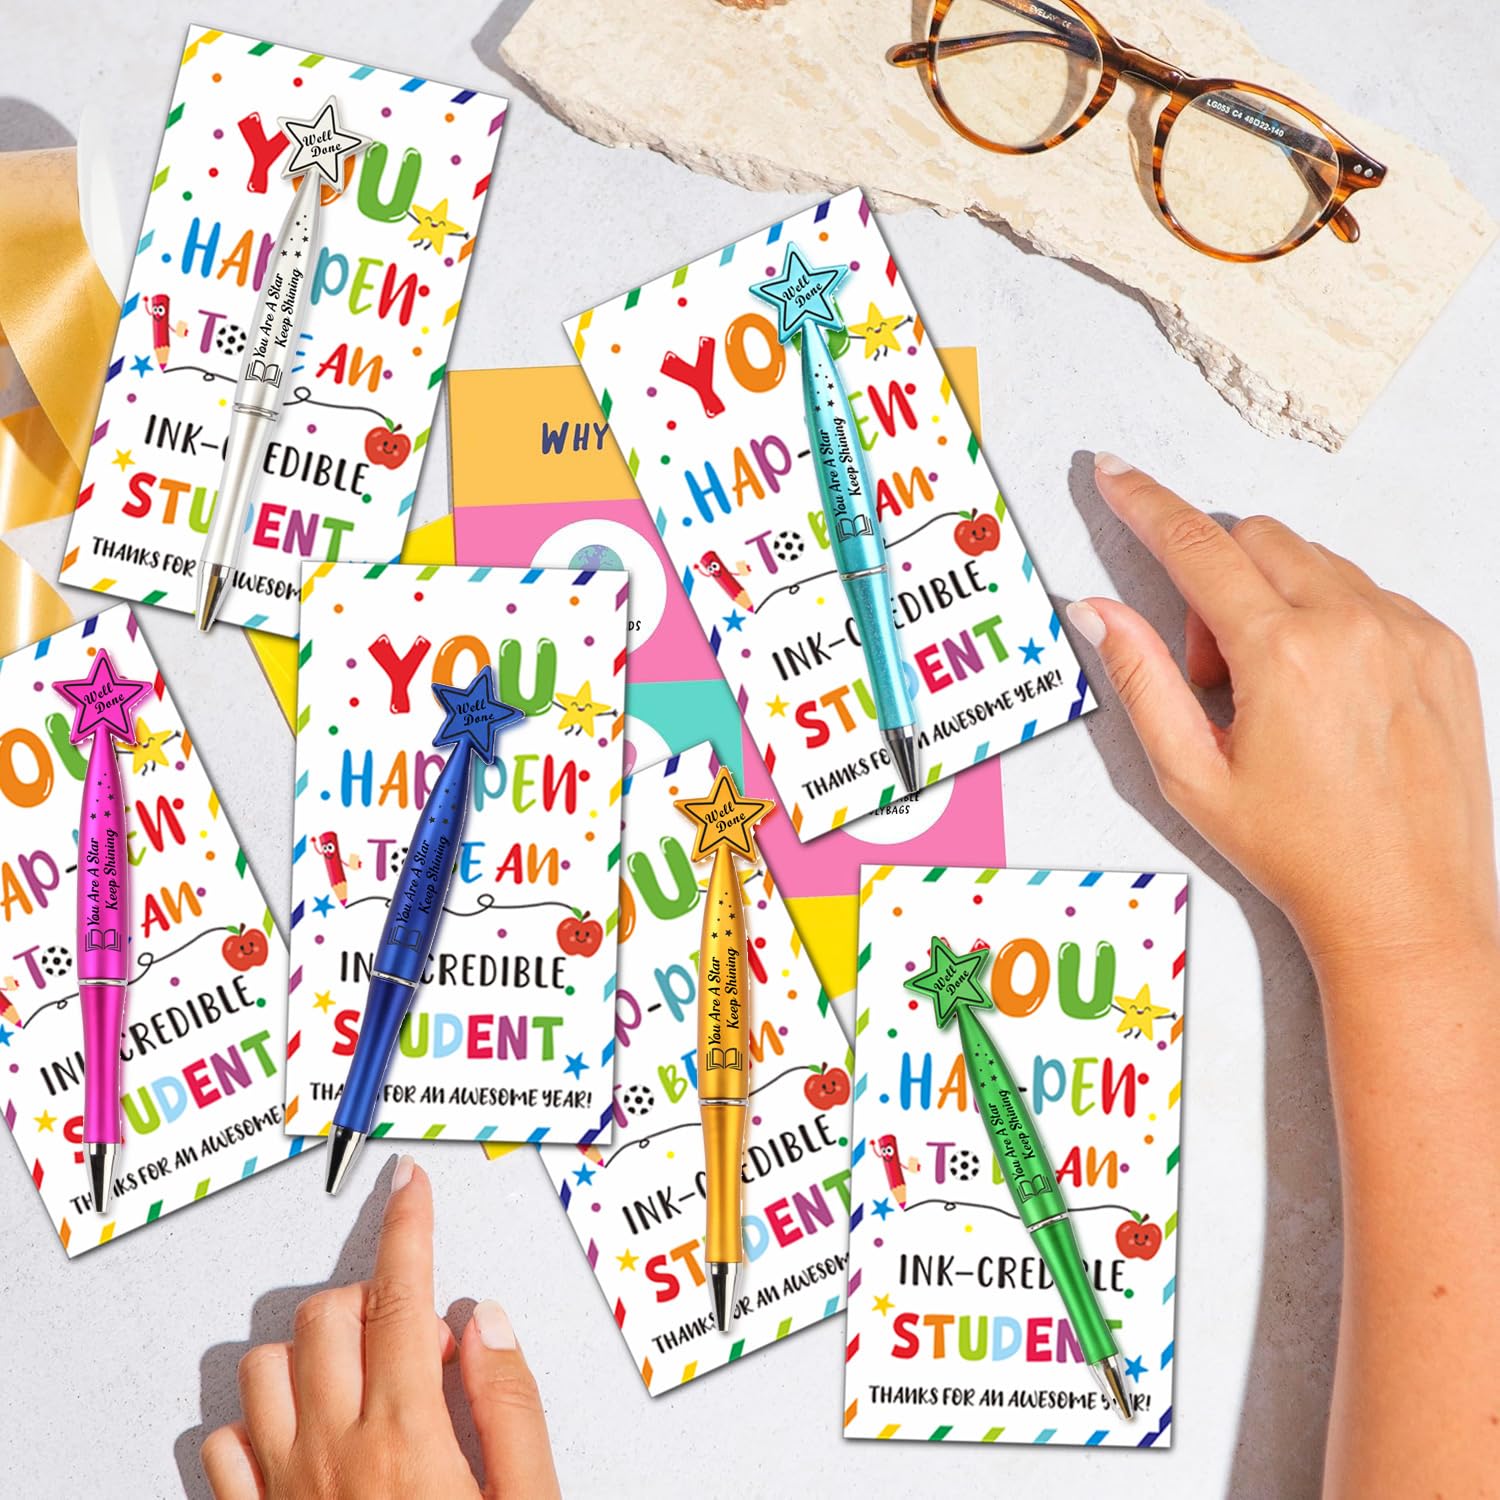 Well
Done
YOU
HAP-PEN
You Are A Star
Keep Shining
TO BE AN
INK-CREDIBLE
STUDENT
THANKS FOR AN AWESOM
EYELAY CE
LG053 C4 48□22-140
Well
Done
YOU
HAP-PEN
You Are A Star
Keep Shining
TO BE AN
INK-CREDIBLE
STUDENT
THANKS FOR AN AWESOME YEAR!
WHY
DS
BLE
LYBAGS
Well
Done
OU
AP-PEN
You Are A Star
Keep Shining
TO BE AN
INK-CREDIBLE
STUDENT
THANKS FOR AN AWESOME
Well
Done
YOU
HAP-PEN
You Are A Star
Keep Shining
TO BE AN
INK-CREDIBLE
STUDENT
THANKS FOR AN AWESOME YEAR!
Well
Done
OU
P-PEN
You Are A Star
Keep Shining
TO BE AN
INK-CREDIBLE
STUDENT
THANKS FOR AN AWESOM
Well
Done
YOU
HAP-PEN
You Are A Star
Keep Shining
TO BE AN
INK-CREDIBLE
STUDENT
THANKS FOR AN AWESOME YEAR!